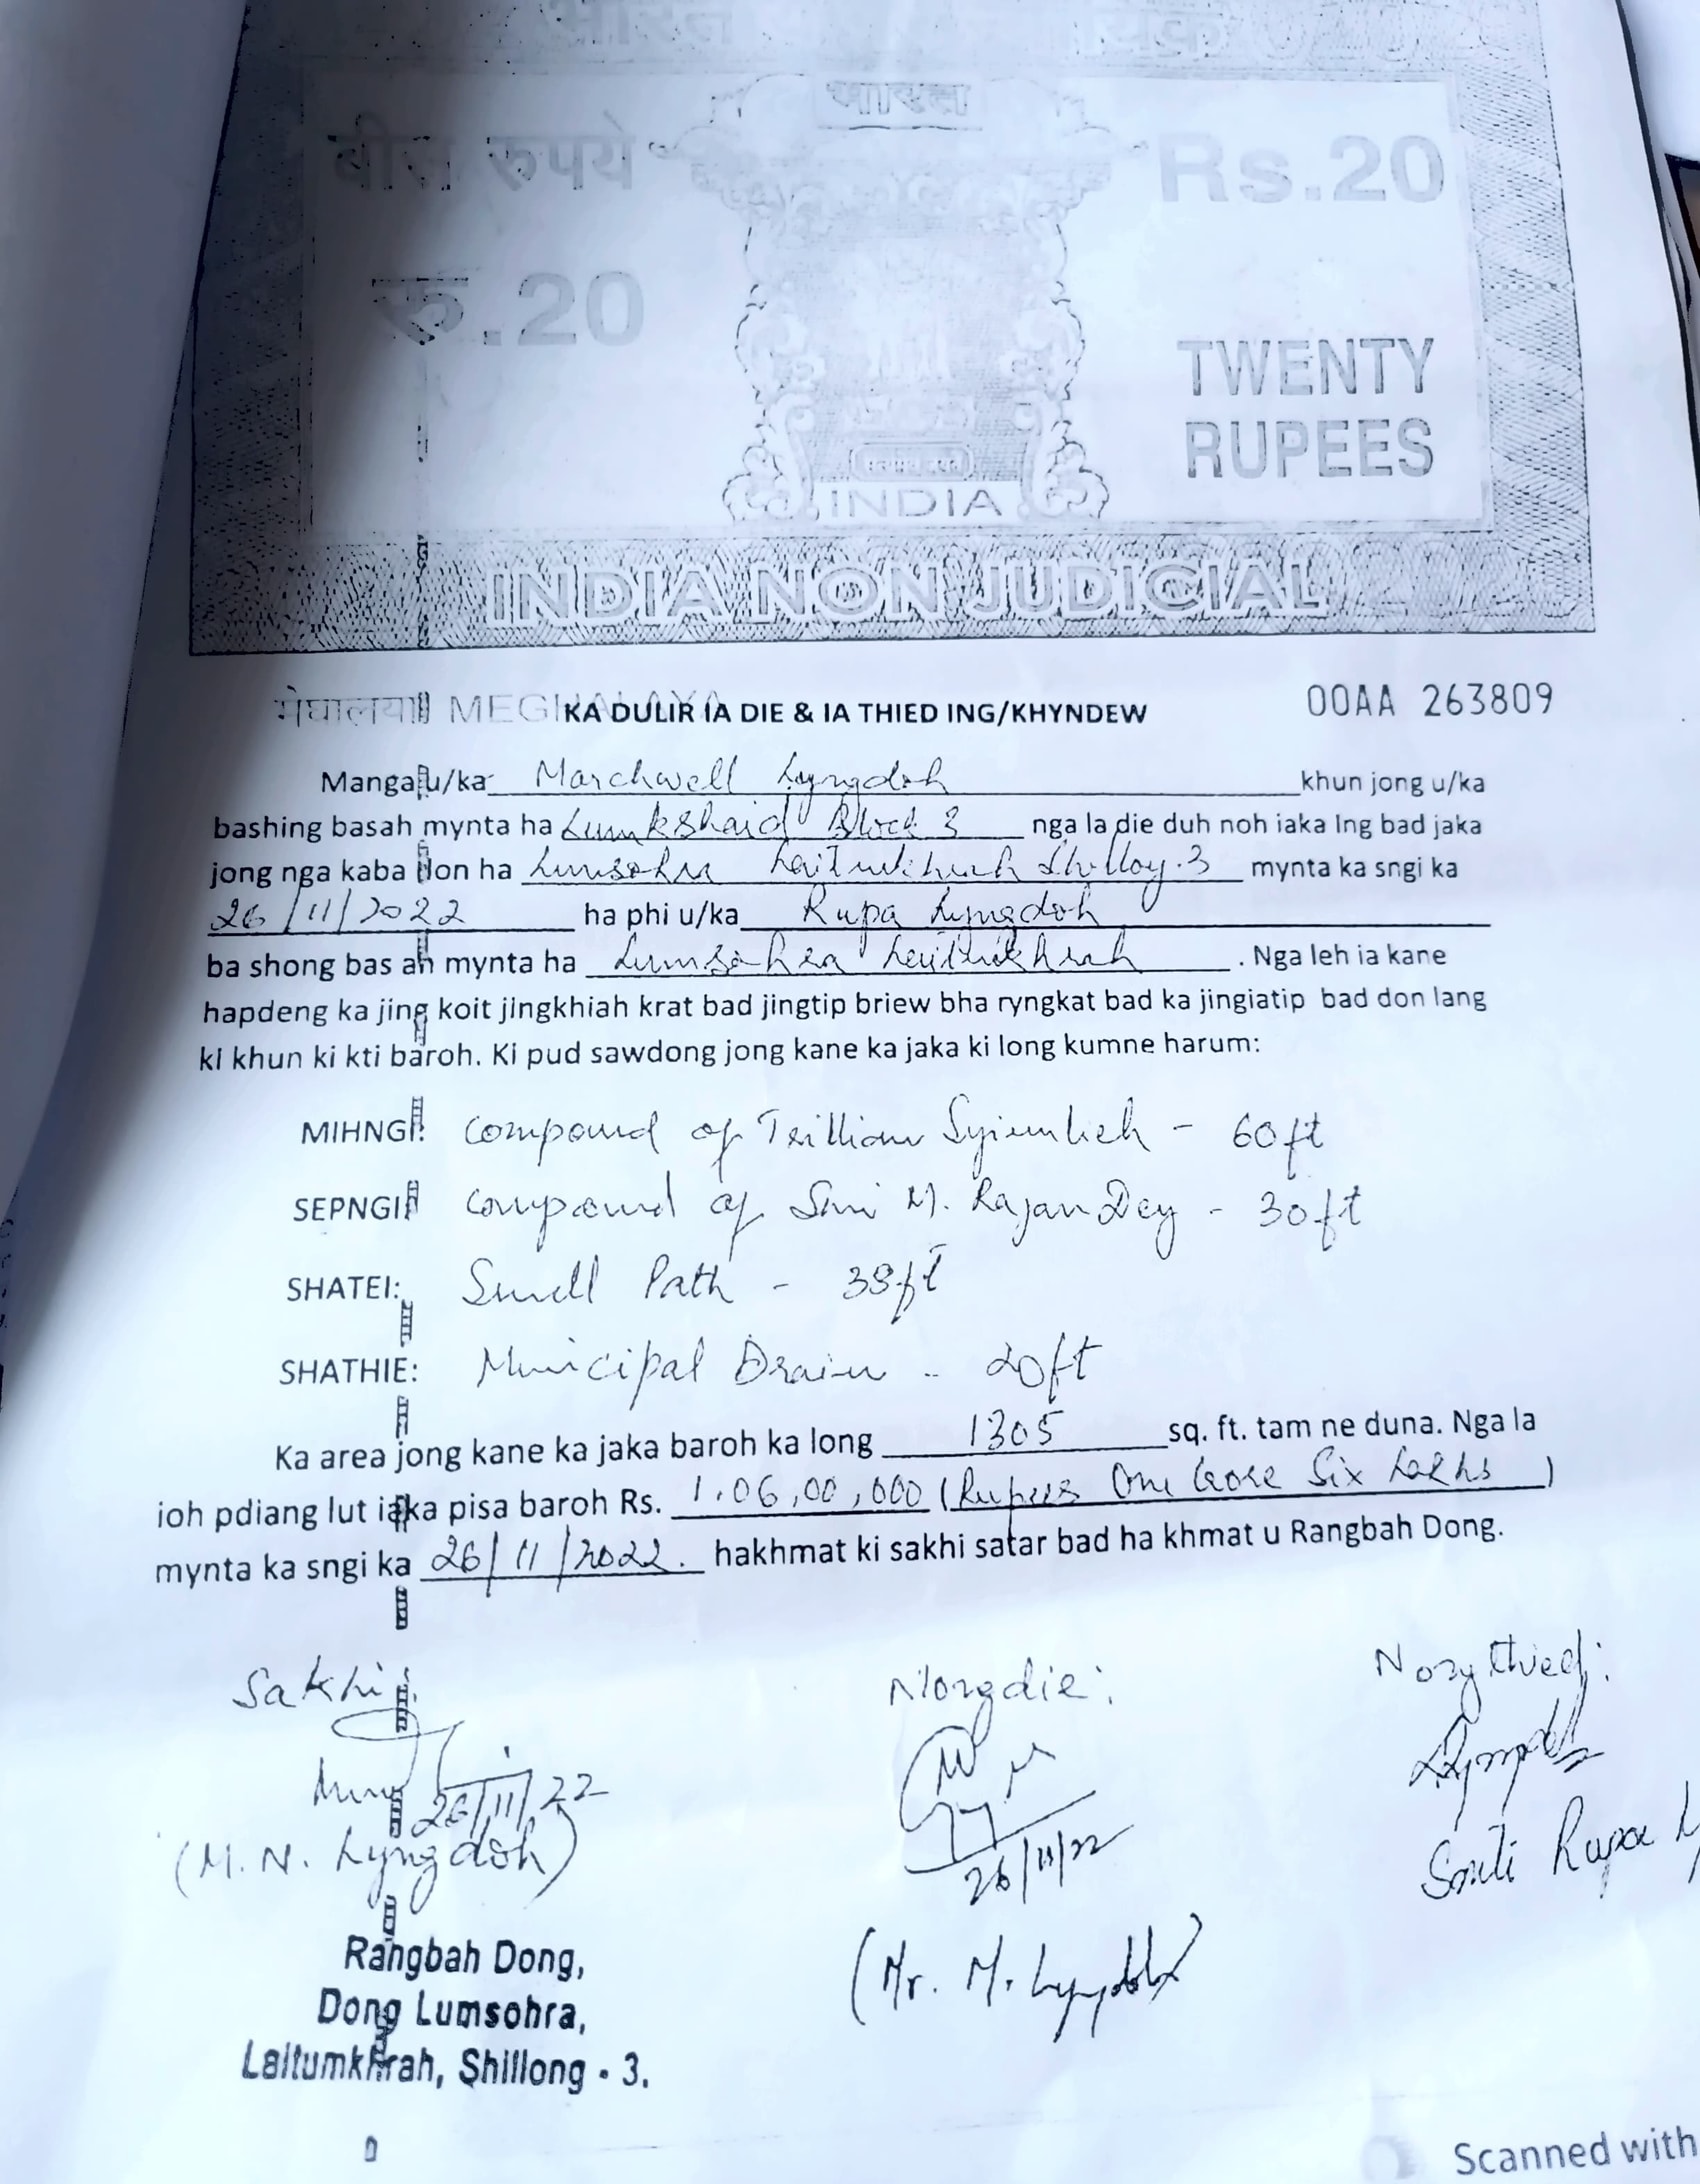 भारत
बीस रुपये
Rs.20
रु.20
TWENTY
RUPEES
INDIA
INDIA NON JUDICIAL
मेघालय MEGHALAYA
00AA 263809
KA DULIR IA DIE & IA THIED ING/KHYNDEW
Manga u/ka Marchwell Lyngdoh khun jong u/ka
bashing basah mynta ha Lumkshaid Block 3 nga la die duh noh iaka Ing bad jaka
jong nga kaba don ha Lumsohra Laitumkhrah Shillong.3 mynta ka sngi ka
26/11/2022 ha phi u/ka Rupa Lyngdoh
ba shong bas ah mynta ha Lumsohra Laitumkhrah. Nga leh ia kane
hapdeng ka jing koit jingkhiah krat bad jingtip briew bha ryngkat bad ka jingiatip bad don lang
ki khun ki kti baroh. Ki pud sawdong jong kane ka jaka ki long kumne harum:
MIHNGI: Compound of Trillian Syiemlieh - 60ft
SEPNGI: Compound of M. Rajan Dey - 30ft
SHATEI: Small Path - 38ft
SHATHIE: Municipal Drain - 20ft
Ka area jong kane ka jaka baroh ka long 1305 sq. ft. tam ne duna. Nga la
ioh pdiang lut iaka pisa baroh Rs. 1,06,00,000 (Rupees One Crore Six Lakhs)
mynta ka sngi ka 26/11/2022. hakhmat ki sakhi satar bad ha khmat u Rangbah Dong.
Sakhi:
Nongdie:
Nongthied:
26/11/22
(M. N. Lyngdoh)
26/11/22
(Mr. M. Lyngdoh)
Smti Rupa L
Rangbah Dong,
Dong Lumsohra,
Laitumkhrah, Shillong - 3.
Scanned with